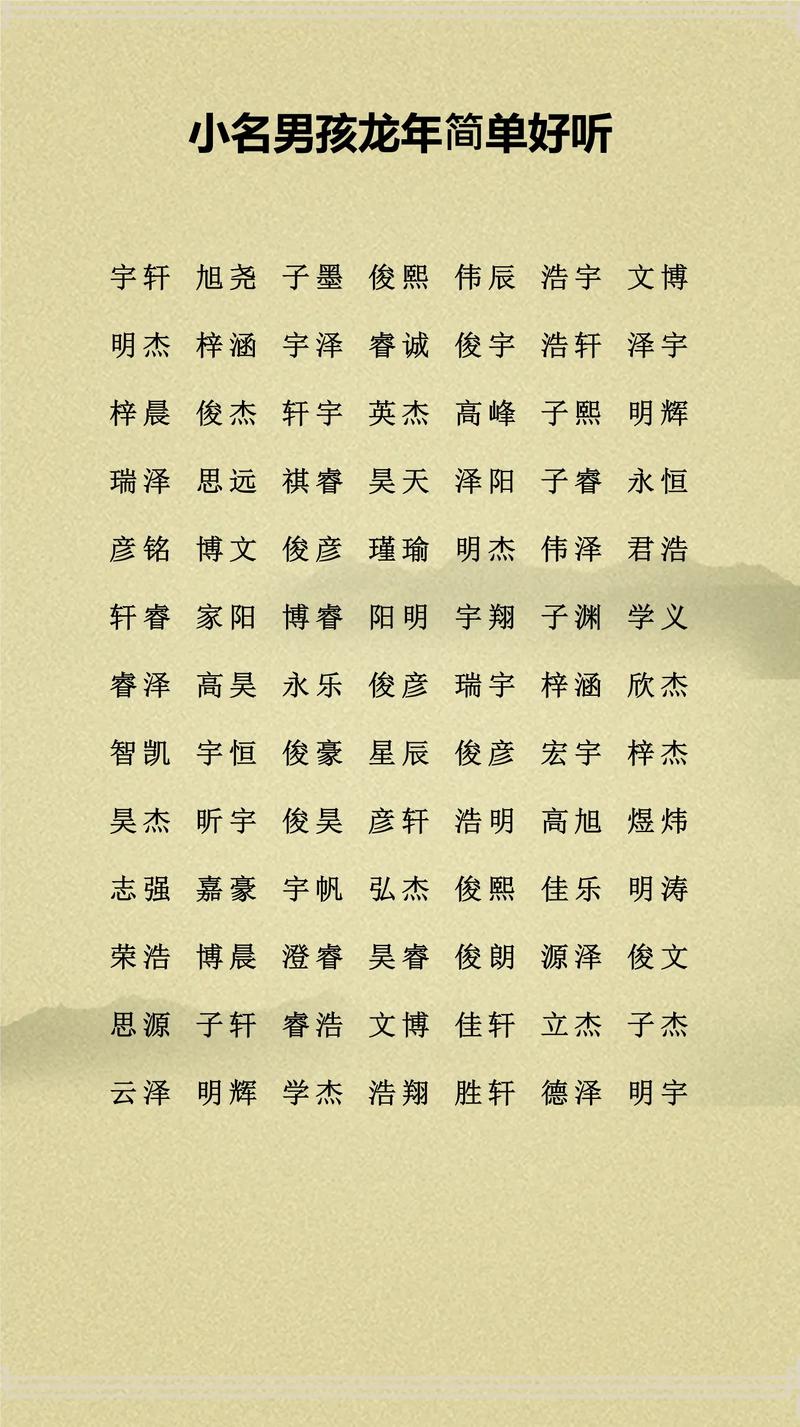 小名男孩龙年简单好听
宇轩 旭尧 子墨 俊熙 伟辰 浩宇 文博
明杰 梓涵 宇泽 睿诚 俊宇 浩轩 泽宇
梓晨 俊杰 轩宇 英杰 高峰 子熙 明辉
瑞泽 思远 祺睿 昊天 泽阳 子睿 永恒
彦铭 博文 俊彦 瑾瑜 明杰 伟泽 君浩
轩睿 家阳 博睿 阳明 宇翔 子渊 学义
睿泽 高昊 永乐 俊彦 瑞宇 梓涵 欣杰
智凯 宇恒 俊豪 星辰 俊彦 宏宇 梓杰
昊杰 昕宇 俊昊 彦轩 浩明 高旭 煜炜
志强 嘉豪 宇帆 弘杰 俊熙 佳乐 明涛
荣浩 博晨 澄睿 昊睿 俊朗 源泽 俊文
思源 子轩 睿浩 文博 佳轩 立杰 子杰
云泽 明辉 学杰 浩翔 胜轩 德泽 明宇